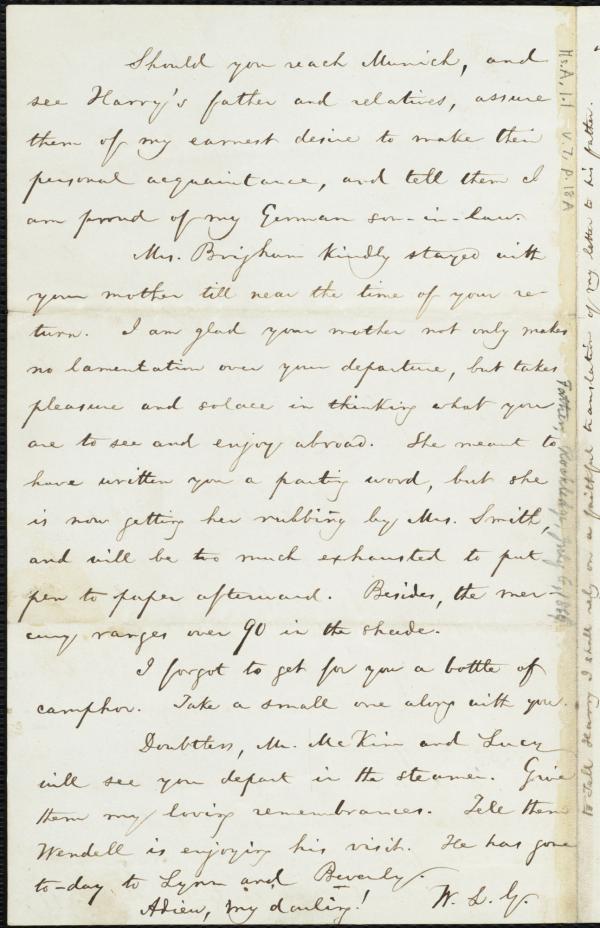 Should you reach Munich, and
see Harry's father and relatives, assure
them of my earnest desire to make their
personal acquaintance, and tell them I
am proud of my German son-in-law.
Mrs. Brigham kindly stayed with
your mother till near the time of your re-
turn. I am glad your mother not only makes
no lamentation over your departure, but takes
pleasure and solace in thinking what you
are to see and enjoy abroad. She meant to
have written you a parting word, but she
is now getting her rubbing by Mrs. Smith,
and will be too much exhausted to put
pen to paper afterward. Besides, the mer-
cury ranges over 90 in the shade.
I forgot to get for you a bottle of
camphor. Take a small one along with you.
Doubtless, Mr. McKim and Lucy
will see you depart in the steamer. Give
them my loving remembrances. Tell them
Wendell is enjoying his visit. He has gone
to-day to Lynn and Beverly.
Adieu, my darling!
W. L. G.
Ms. A. 1.1 v. 7, p. 18A
July 6, 1869
Tell Harry I shall rely on a faithful translation of my letter to his father.